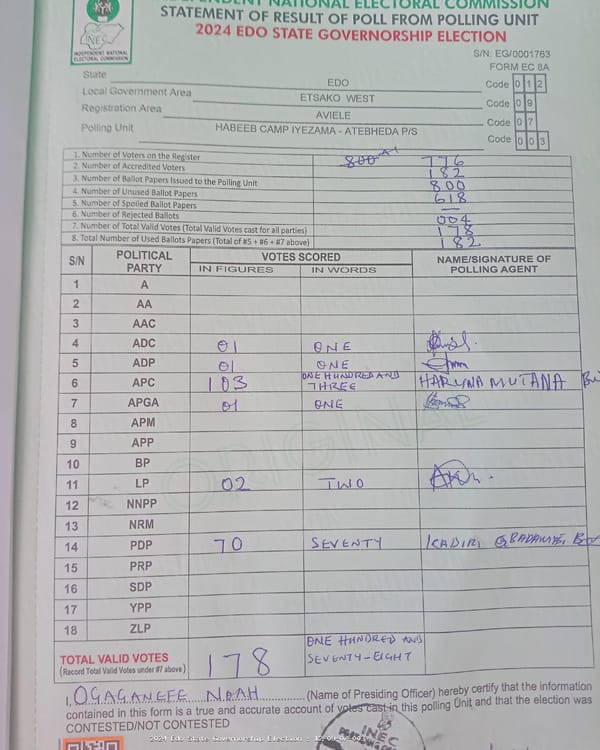 INDEPENDENT NATIONAL ELECTORAL COMMISSION
STATEMENT OF RESULT OF POLL FROM POLLING UNIT
2024 EDO STATE GOVERNORSHIP ELECTION
INEC
INDEPENDENT NATIONAL ELECTORAL COMMISSION
S/N: EG/0001763
FORM EC 8A
State EDO Code 0 1 2
Local Government Area ETSAKO WEST Code 0 9
Registration Area AVIELE Code 0 7
Polling Unit HABEEB CAMP IYEZAMA - ATEBHEDA P/S Code 0 0 3
1. Number of Voters on the Register 800 776
2. Number of Accredited Voters 182
3. Number of Ballot Papers Issued to the Polling Unit 800
4. Number of Unused Ballot Papers 618
5. Number of Spoiled Ballot Papers —
6. Number of Rejected Ballots 004
7. Number of Total Valid Votes (Total Valid Votes cast for all parties) 178
8. Total Number of Used Ballots Papers (Total of #5 + #6 + #7 above) 182
S/N POLITICAL PARTY VOTES SCORED NAME/SIGNATURE OF POLLING AGENT
IN FIGURES IN WORDS
1 A
2 AA
3 AAC
4 ADC 01 ONE
5 ADP 01 ONE
6 APC 103 ONE HUNDRED AND THREE HARUNA MUTANA
7 APGA 01 ONE
8 APM
9 APP
10 BP
11 LP 02 TWO
12 NNPP
13 NRM
14 PDP 70 SEVENTY KADIRI
15 PRP
16 SDP
17 YPP
18 ZLP
ORIGINAL
TOTAL VALID VOTES 178 ONE HUNDRED AND SEVENTY-EIGHT
(Record Total Valid Votes under #7 above)
I, OGAGANEFE NOAH (Name of Presiding Officer) hereby certify that the information
contained in this form is a true and accurate account of votes cast in this polling Unit and that the election was
CONTESTED/NOT CONTESTED
INEC
2024 Edo State Governorship Election